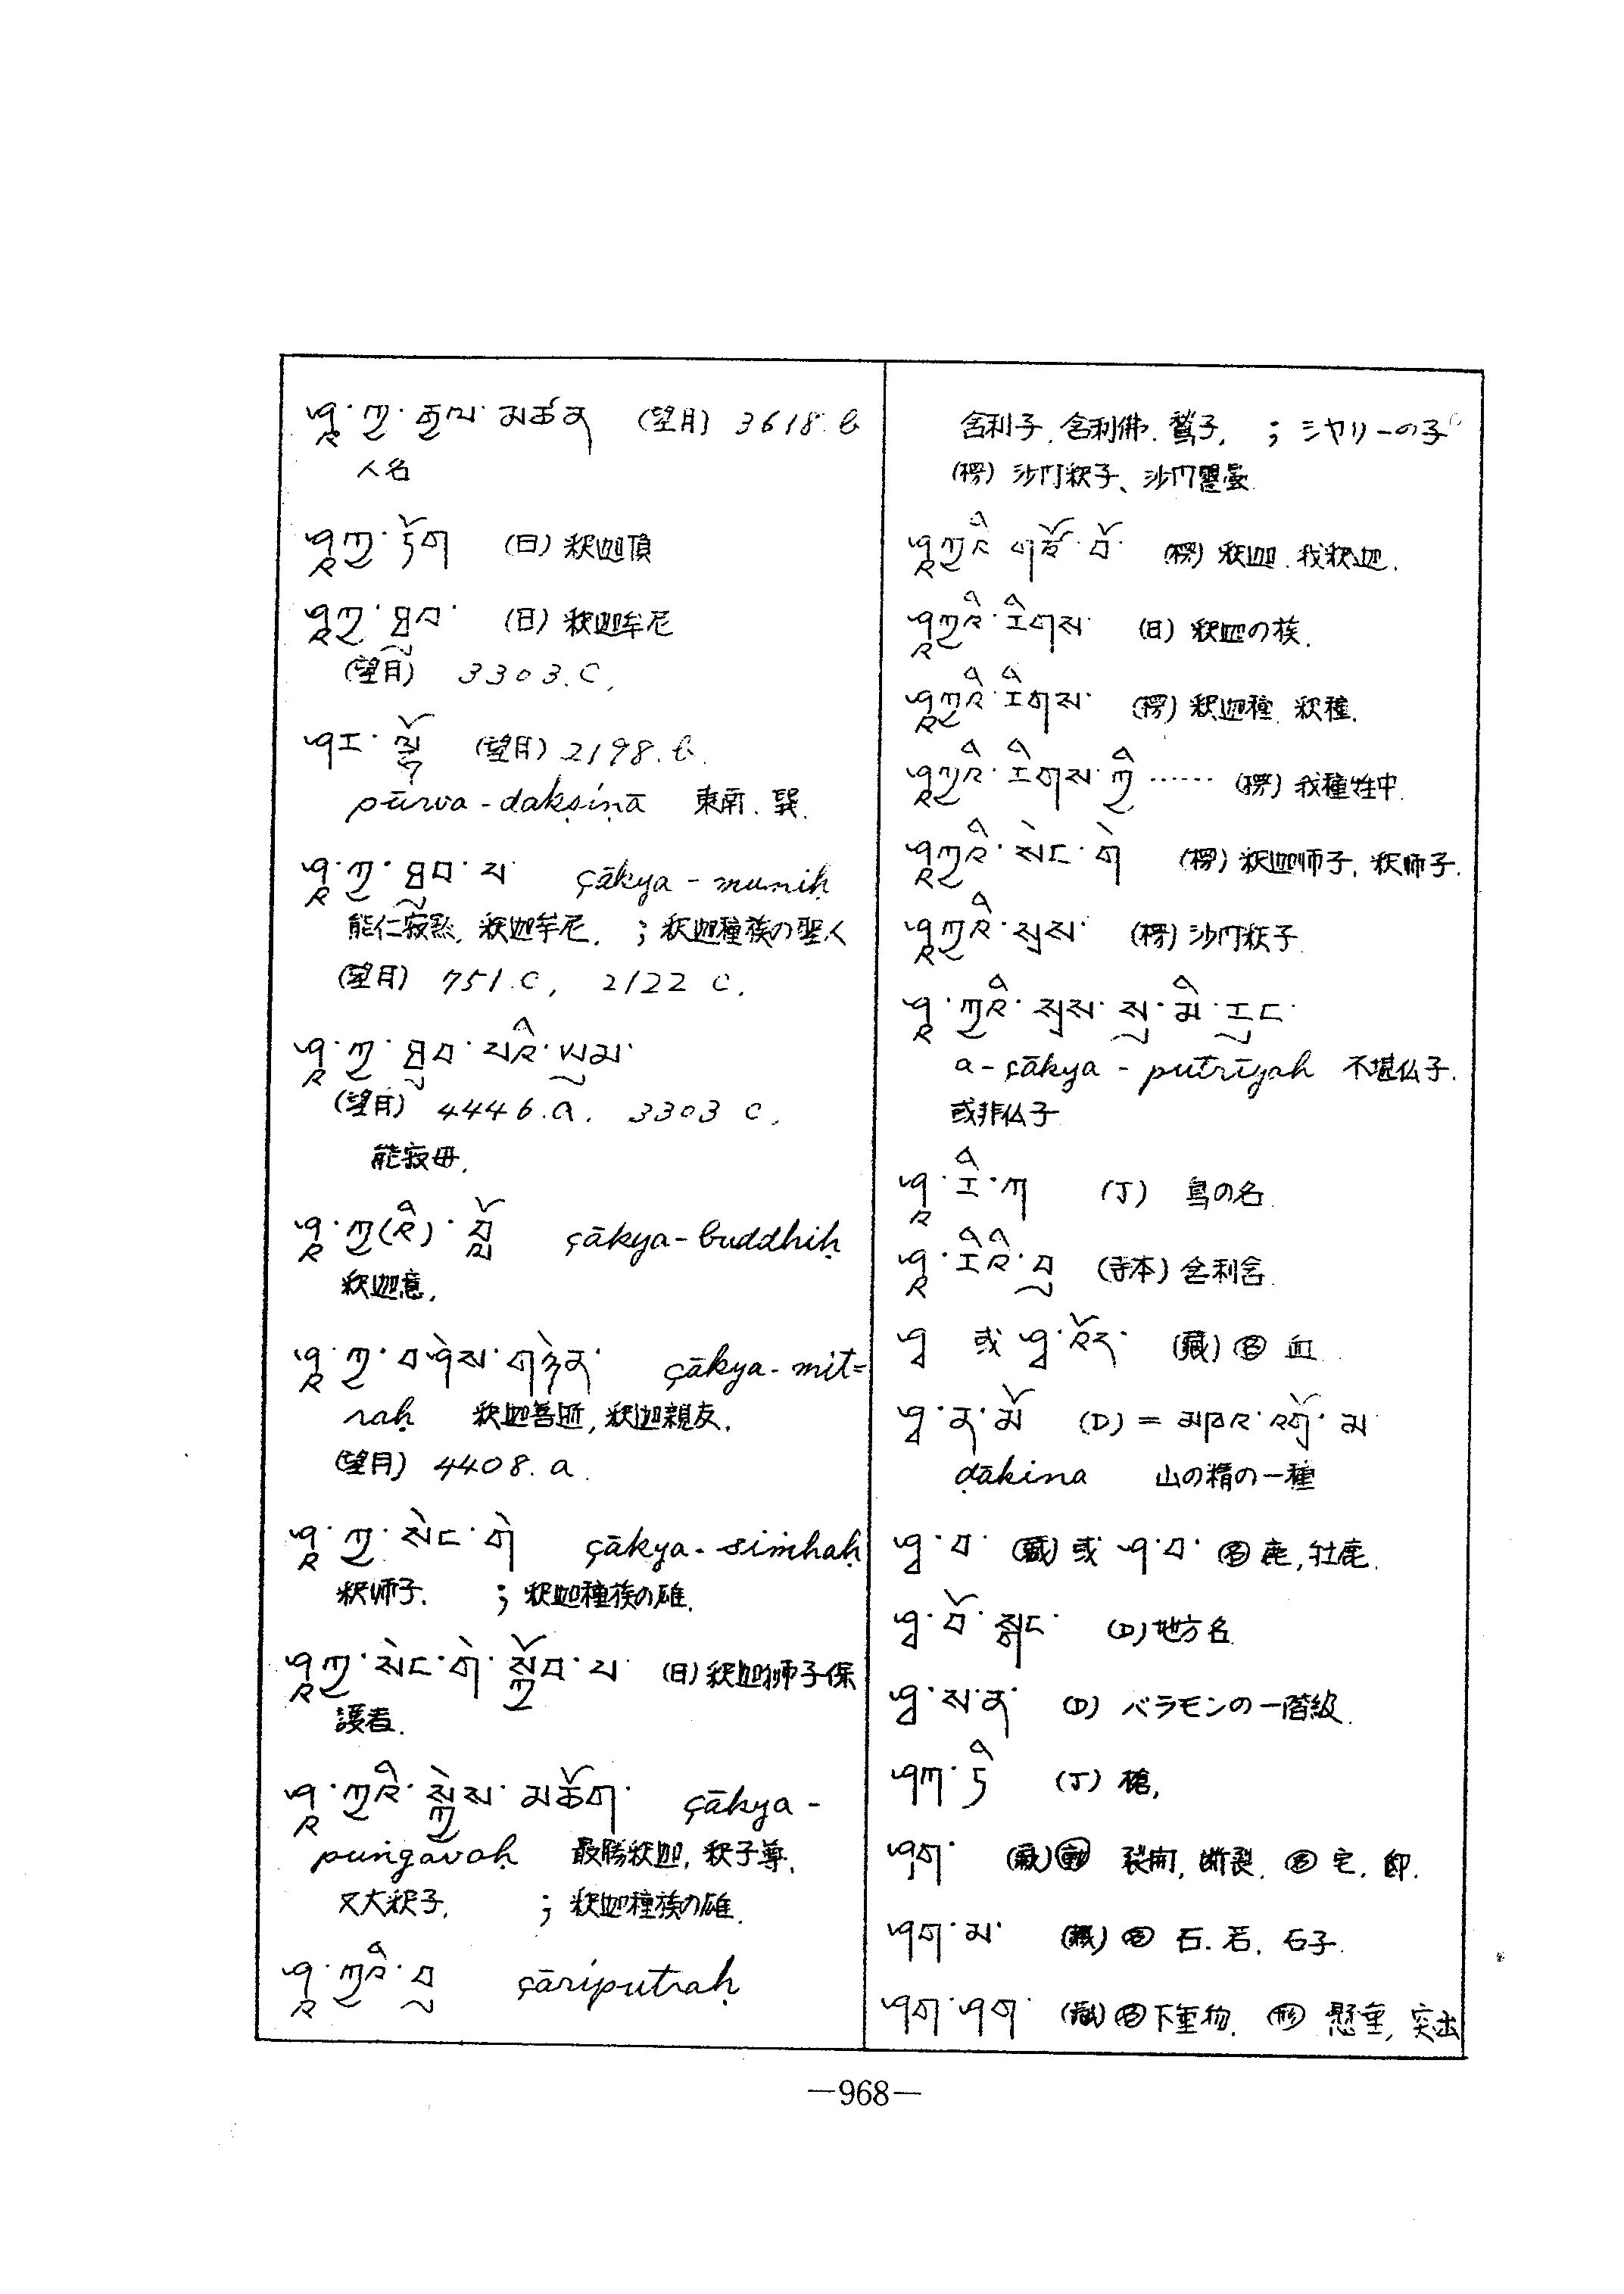 ཤཱ་ཀྱ་རྒྱལ་མཚན (望月) 3618.b
人名
ཤཱཀྱ་ཏོག (日) 釈迦頂
ཤཱཀྱ་ཐུབ་ (日) 釈迦牟尼
(望月) 3303.C,
ཤར་ལྷོ (望月) 2198.b.
pūrva-dakṣiṇā 東南. 巽.
ཤཱ་ཀྱ་ཐུབ་པ་ çākya-muniḥ
能仁寂黙, 釈迦牟尼, ; 釈迦種族の聖人
(望月) 751.C, 2122 C.
ཤཱ་ཀྱ་ཐུབ་པའི་ཡུམ་
(望月) 4446.a. 3303 C,
能寂母,
ཤཱ་ཀྱ(འི)་བློ çākya-buddhiḥ
釈迦意,
ཤཱ་ཀྱ་བཤེས་གཉེན་ çākya-mit=
raḥ 釈迦善逝, 釈迦親友,
(望月) 4408.a.
ཤཱ་ཀྱ་སེང་གེ çākya-siṁhaḥ
釈师子. ; 釈迦種族の雄.
ཤཱཀྱ་སེང་གེ་སྐྱོབ་པ་ (日) 釈迦獅子保
護者.
ཤཱ་ཀྱའི་སྐྱེས་མཆོག་ çākya-
puṅgavaḥ 最勝釈迦, 釈子尊,
又大釈子, ; 釈迦種族の雄.
ཤཱ་ཀྱའི་བུ çāriputraḥ
舎利子, 舎利佛. 鶖子, ; シヤリーの子
(楞) 沙门釈子、沙门瞿曇.
ཤཱཀྱའི་གཙོ་བོ་ (楞) 釈迦. 我釈迦.
ཤཱཀྱའི་རིགས་ (日) 釈迦の族.
ཤཱཀྱའི་རིགས་ (楞) 釈迦種 釈種.
ཤཱཀྱའི་རིགས་ཀྱི …… (楞) 我種姓中.
ཤཱཀྱའི་སེང་གེ (楞) 釈迦师子, 釈师子.
ཤཱཀྱའི་སྲས་ (楞) 沙门釈子
ཤཱ་ཀྱའི་སྲས་སུ་མི་རུང་
a-çākya-putrīyaḥ 不堪仏子.
或非仏子
ཤཱ་རི་ཀ (J) 鳥の名
ཤཱ་རིའི་བུ (寺本) 舎利舎.
ཤྭ 或 ཤྭ་འོད་ (藏) 名 血.
ཤྭ་ན་མོ (D) = མཁའ་འགྲོ་མ་
ḍākina 山の精の一種
ཤྭ་བ་ (藏) 或 ཤ་བ་ 名 鹿, 牡鹿.
ཤྭ་བོ་སྒང་ (D) 地方名.
ཤྭ་ས་ན་ (D) バラモンの一階級.
ཤཀ་ཏི (J) 槍,
ཤག་ (藏) 動 裂開, 断裂. 名 宅.
ཤག་མ་ (藏) 名 石. 石子.
ཤག་ཤག་ (藏) 名 下垂物. 形 懸垂, 突出
—968—